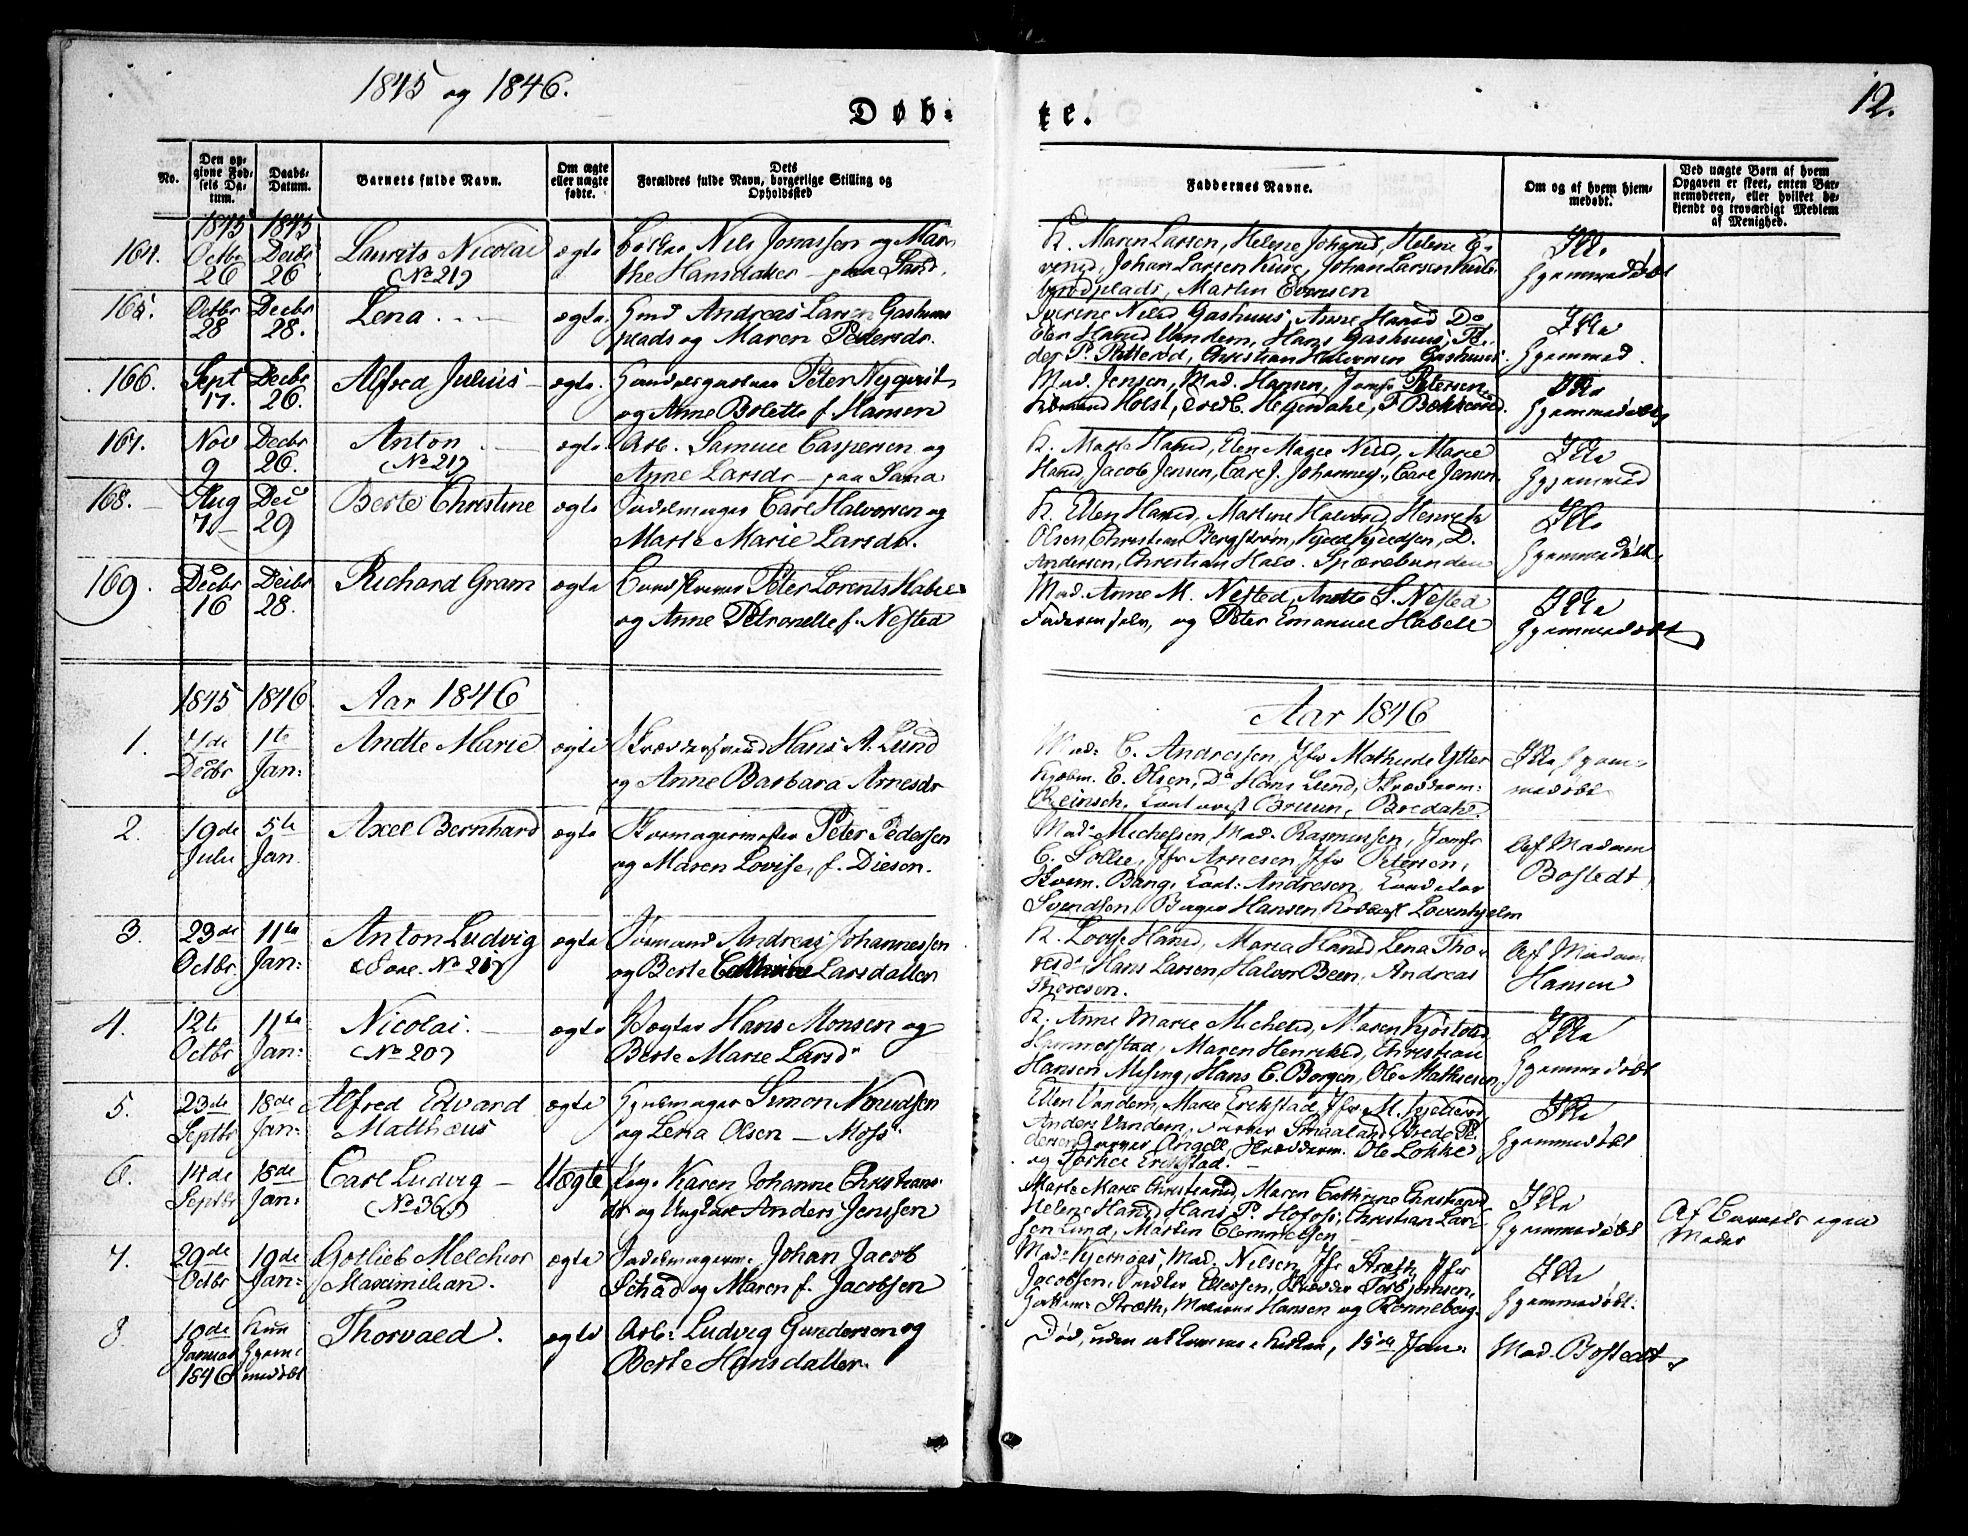 1845 og 1846.
12.
Døb-
te.
No.
Den opgivne Fødsels Datum.
Daabs-Datum.
Barnets fulde Navn.
Om ægte eller uægte fødte.
Dets Forældres fulde Navn, borgerlige Stilling og Opholdssted
Faddernes Navne.
Om og af hvem hjemmedøbt.
Ved uægte Børn af hvem Opgaven er skeet, enten Barnemoderen, eller hvilket bekjendt og troværdigt Medlem af Menighed.
1845 1845
164. Octbr 26 Decbr 26 Laurits Nicolai ægte Nils Jonassen og Mar-
(No 21) the Hansdatter - paa Sand.
K. Maren Larsen, Helene Johansd, Helene E-
vensd, Johan Larsen Kure, Johan Larsen
plads, Martin Evensen
Ikke
hjemmedøbt
165. Octbr 28 Decbr 28. Lena ægte. Huusmd Andreas Larsen Gashuus
plads og Maren Pedersdr.
Nilsd Gashuus, Anne Hansd Do
Hansd Vandem, Hans Gashuus, Pe-
der P. Patterød, Christian Halvorsen Gashuus
Ikke
hjemmed.
166. Sept 17. Decbr 26. Alfred Julius ægte. Peter Nyqvist
og Anne Bolette f. Hansen
Mad. Jensen, Mad. Hansen, Jomfr Petersen,
Holst, Fredk. Heyerdahl, P
Ikke
hjemmedøbt
167. Nov 9 Decbr 26. Anton ægte Arb. Samuel Caspersen og
(No 21) Anne Larsdr - paa Sand
K. Marte Hansd, Elen Marie Nilsd, Marie
Hansd, Jacob Jensen, Carl J. Johannes., Carl Jensen
Ikke
hjemmed
168. Aug 7 Dec 29 Berte Christine ægte Sadelmager Carl Halvorsen og
Marte Marie Larsdr.
K. Ellen Hansd, Martine Halvorsd, Henrik
Olsen, Christian Bergstrøm, D.
Andersen, Christian Halv. Skjærebunden
Ikke
hjemmedøbt.
169. Decbr 16 Decbr 28. Richard Gram ægte Peter Lorents Habel
og Anne Petronelle f. Nested
Mad. Anne M. Nested, Andte S. Nested
Faderen selv, og Peter Emanuel Habell
Ikke
hjemmedøbt
1845 1846 Aar 1846
Aar 1846
1. 7de Decbr 1te Jan: Andte Marie ægte Skræddersvend Hans A. Lund
og Anne Barbara Arnesdr
Mad: C. Andresen, Jfr Mathilde Ytter
Kjøbm. E. Olsen, Do Hans Lund, Skrædderm:
Reinsch, Bruun, Bredahl.
Ikke hjem-
medøbt
2. 19de Julii 5te Jan. Axel Bernhard ægte Skomagermester Peter Pedersen
og Maren Lovise, f. Diesen.
Mad. Michelsen, Mad. Rasmussen, Jomfr
C. Sollie, Jfr Arnesen, Jfr Petersen,
Bang, Andresen,
Svendsen, Bager Hansen, Løvenhjelm
Af Madam
Bostedt
3. 23de Octbr 11te Jan: Anton Ludvig ægte Formand Andreas Johannessen
No 20 og Berte Cathrine Larsdatter
K. Lovise Hansd, Maria Hansd, Lena Tho-
resd, Hans Larsen, Halvor Been, Andreas
Thoresen.
Af Madam
Hansen
4. 12te Octbr 11te Jan: Nicolai. ægte Vægter Hans Monsen og
(No 20) Berte Marie Larsdr
K. Anne Marie Michelsd, Maren Kjøstad,
Maren Henriksd, Christian
Hansen Mising, Hans C. Borgen, Ole Mathiesen,
Ikke
hjemmedøbt
5. 23de Septbr 18de Jan: Alfred Edvard ægte Hjulmager Simon Knudsen
Matthæus og Lena Olsen - Moss
Ellen Vandem, Marie Erikstad, Jfr M.
Anders Vandem, Smaaland, Brede Pe-
dersen, Angell, Skrædderm. Ole Løkke
og Erikstad.
Ikke
hjemmedøbt
6. 14de Septbr 18de Jan: Carl Ludvig Uægte Pige Karen Johanne Christians-
(No 36) dr og Ungkarl Anders Jenssen
Marte Marie Christiansd, Maren Cathrine Christiansd
Helene Hansd, Hans P. Christian Lar-
sen Lund, Martin Clemmetsen
Ikke
hjemmedøbt
Af Barnets egen
Moder
7. 29de Octbr 19de Jan: Gotlieb Melchior ægte Sadelmagerm. Johan Jacob
Maximilian. Schad og Maren f. Jacobsen
Mad. Kjernaas, Mad. Nilsen, Jfr Stræth, Jfr
Jacobsen, Ellefsen, Skræder Torbjørnsen,
Stræth, Hansen og Rønneberg.
Ikke
hjemmedøbt.
8. 10de Januar 1846 Kun hjem- medøbt Thorvald. ægte Arb: Ludvig Gundersen og
Berte Hansdatter.
Død, uden at komme i Kirken, 15de Jan:
Mad. Bostedt.